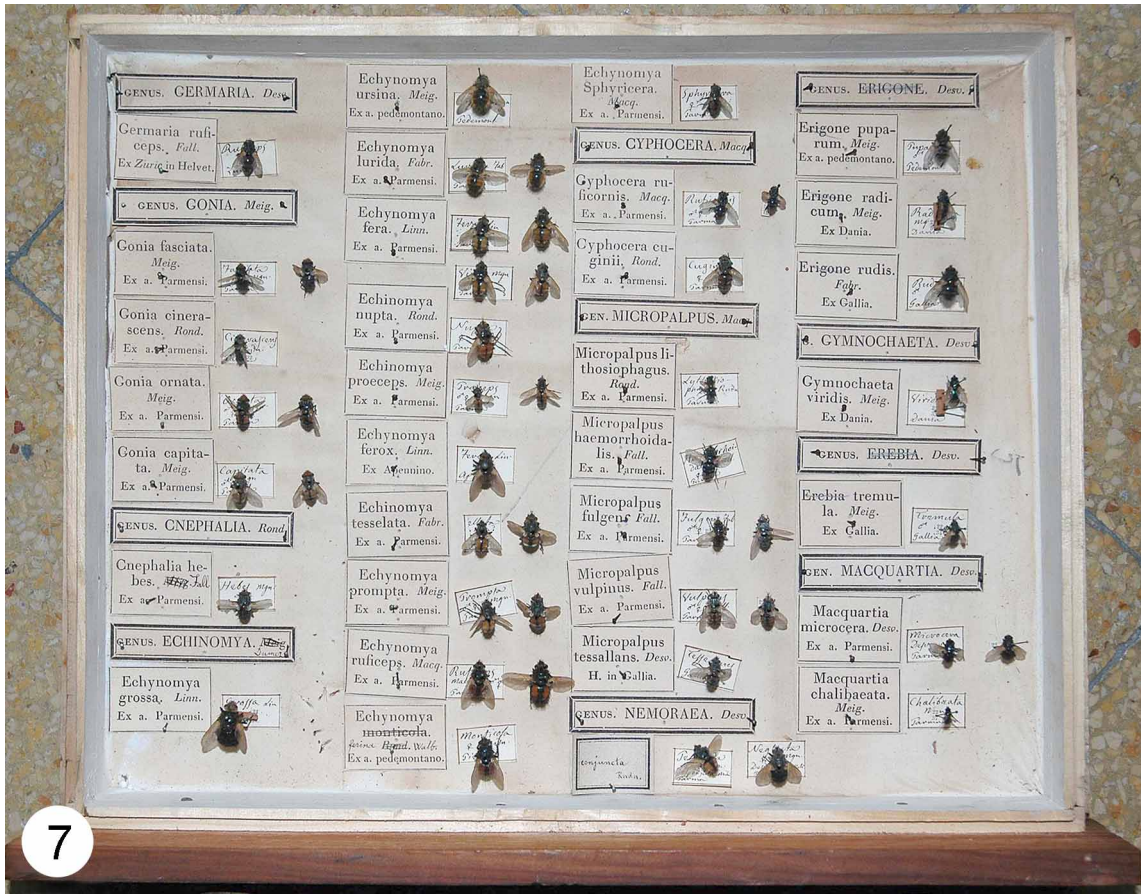 GENUS. GERMARIA. Desv.
Germaria rufi-
ceps. Fall.
Ex Zuric in Helvet.
GENUS. GONIA. Meig.
Gonia fasciata.
Meig.
Ex a. Parmensi.
Gonia cinera-
scens. Rond.
Ex a. Parmensi.
Gonia ornata.
Meig.
Ex a. Parmensi.
Gonia capita-
ta. Meig.
Ex a. Parmensi.
Capitata
GENUS. CNEPHALIA. Rond.
Cnephalia he-
bes. Fall
Ex a. Parmensi.
Hebes Mgn
GENUS. ECHINOMYA.
Dumer.
Echynomya
grossa. Linn.
Ex a. Parmensi.
Grossa Lin
Echynomya
ursina. Meig.
Ex a. pedemontano.
Echynomya
lurida. Fabr.
Ex a. Parmensi.
Echynomya
fera. Linn.
Ex a. Parmensi.
Echinomya
nupta. Rond.
Ex a. Parmensi.
Echinomya
proeceps. Meig.
Ex a. Parmensi.
Echynomya
ferox. Linn.
Ex Apennino.
Echinomya
tesselata. Fabr.
Ex a. Parmensi.
Echynomya
prompta. Meig.
Ex a. Parmensi.
Echynomya
ruficeps. Macq.
Ex a. Parmensi.
Echynomya
monticola.
ferina Rond. Walb.
Ex a. pedemontano.
Monticola
Echynomya
Sphyricera.
Macq.
Ex a. Parmensi.
GENUS. CYPHOCERA. Macq.
Gyphocera ru-
ficornis. Macq.
Ex a. Parmensi.
Cyphocera cu-
ginii. Rond.
Ex a. Parmensi.
GEN. MICROPALPUS. Macq.
Micropalpus li-
thosiophagus.
Rond.
Ex a. Parmensi.
Micropalpus
haemorrhoida-
lis. Fall.
Ex a. Parmensi.
Micropalpus
fulgens Fall.
Ex a. Parmensi.
Micropalpus
vulpinus. Fall.
Ex a. Parmensi.
Micropalpus
tessallans. Desv.
H. in Gallia.
GENUS. NEMORAEA. Desv.
conjuncta
Rnda.
GENUS. ERIGONE. Desv.
Erigone pupa-
rum. Meig.
Ex a. pedemontano.
Erigone radi-
cum. Meig.
Ex Dania.
Erigone rudis.
Fabr.
Ex Gallia.
G. GYMNOCHAETA. Desv.
Gymnochaeta
viridis. Meig.
Ex Dania.
Dania
GENUS. EREBIA. Desv.
Erebia tremu-
la. Meig.
Ex Gallia.
Tremula
Gallia
GEN. MACQUARTIA. Desv.
Macquartia
microcera. Desv.
Ex a. Parmensi.
Microcera
Macquartia
chalibaeata.
Meig.
Ex a. Parmensi.
Chalibaeata
7